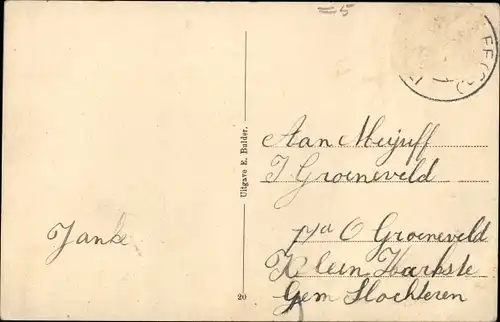 =5
Aan Mejuff
J Groeneveld
p/a O Groeneveld
Klein Harkste
Gem Slochteren
Janke
Uitgave E. Bulder.
20